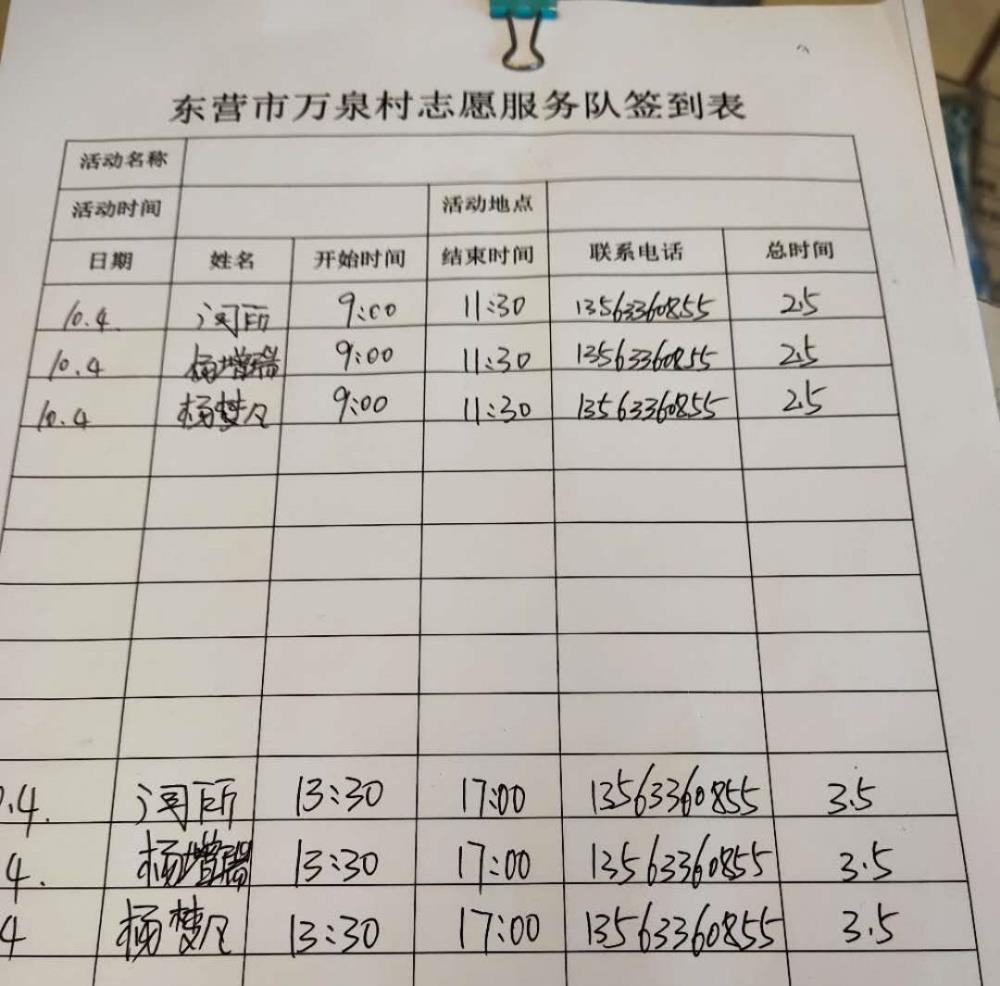 东营市万泉村志愿服务队签到表
活动名称
活动时间 活动地点
日期 姓名 开始时间 结束时间 联系电话 总时间
10.4. 9:00 11:30 13563360855 2.5
10.4 杨增瑞 9:00 11:30 13563360855 2.5
10.4 杨梦凡 9:00 11:30 13563360855 2.5
.4. 13:30 17:00 13563360855 3.5
4. 杨增瑞 13:30 17:00 13563360855 3.5
4 杨梦凡 13:30 17:00 13563360855 3.5